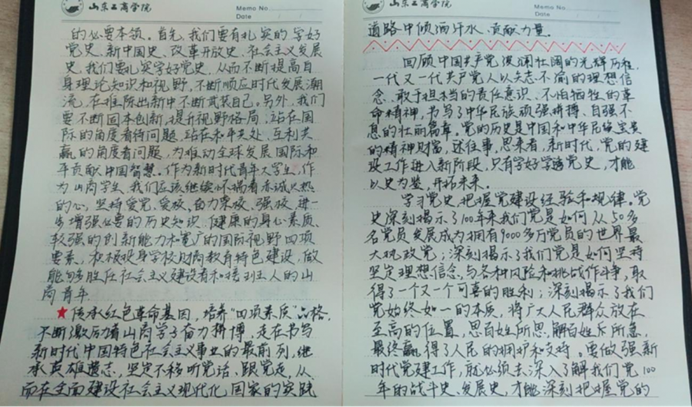 山东工商学院
Memo No.
Date
的必要本领。首先,我们要有扎实的学好
党史、新中国史、改革开放史、社会主义发展
史,我们要扎实学好党史,从而不断提高自
身理论知识和视野,不断顺应时代发展潮
流,在推陈出新中不断武装自己。另外,我们
要不断固本创新,提升视野格局,站在国
际的角度看待问题,站在和平共处、互利共
赢的角度看问题,为推动全球发展国际和
平贡献中国智慧。作为新时代青年大学生,作
为山商学生,我们应该继续怀揣着赤诚火热
的心,坚持爱党、爱校、奋力荣校、强校,进一
步增强必要的历史知识、健康的身心素质、
较强的创新能力和宽广的国际视野四项
要素,积极投身学校财商教育特色建设,做
能够胜任社会主义建设者和接班人的山
商青年
★传承红色革命基因,培养"四项素质"品格,
不断激励着山商学子奋力拼搏,走在书写
新时代中国特色社会主义事业的最前列,继
承英雄遗志,坚定不移听党话、跟党走,从
而在全面建设社会主义现代化国家的实践
山东工商学院
Memo No.
Date
道路中倾洒汗水、贡献力量
回顾中国共产党波澜壮阔的光辉历程,
一代又一代共产党人以矢志不渝的理想信
念、敢于担当的责任意识、不怕牺牲的革
命精神,书写了中华民族顽强拼搏、自强不
息的壮丽篇章。党的历史是中国和中华民族宝贵
的精神财富,述往事,思来者,新时代,党的建
设工作进入新阶段,只有学好学透党史,才能
以史为鉴,开拓未来。
学习党史把握党建设经验和规律,党
史深刻揭示了100年来我们党是如何从50多
名党员发展成为拥有9000多万党员的世界最
大执政党;深刻揭示了我们党是如何坚持
坚定理想信念,与各种风险和挑战作斗争,取
得了一个又一个可喜的胜利;深刻揭示了我们
党始终如一的本质,将广大人民群众放在
至高的位置,思百姓所思,解百姓所意,
最终赢得了人民的拥护和支持。要做强新
时代党建工作,就必须去深入了解我们党100
年的战斗史、发展史,才能深刻把握党的